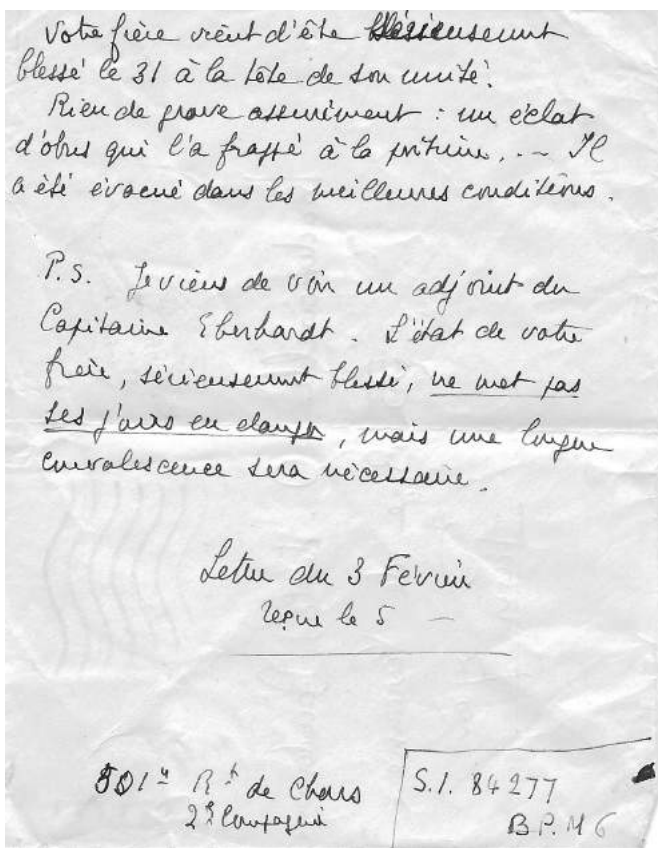 Votre frère vient d'être sérieusement
blessé le 31 à la tête de son unité.
Rien de grave assurément : un éclat
d'obus qui l'a frappé à la poitrine. . — Il
a été évacué dans les meilleures conditions.
P.S. Je viens de voir un adjoint du
Capitaine Eberhardt. L'état de votre
frère, sérieusement blessé, ne met pas
ses jours en danger, mais une longue
convalescence sera nécessaire.
Lettre du 3 Février
reçue le 5 —
501e Rt de Chars
2e Compagnie
S.P. 84277
B.P.M 6